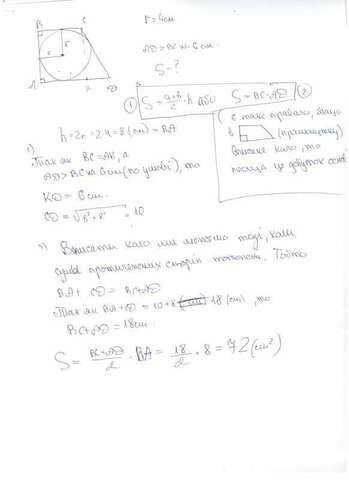 B C
r = 4см
r
AD > BC на 6 см.
S - ?
A K D
① S = a+b/2 · h або S = BC·AD ②
є таке правило, якщо
в (прямокутну)
вписане коло, то
площа це добуток основ
h = 2r = 2·4 = 8 (см) = BA
1)
Так як BC = AK, а
AD > BC на 6 см (по умові), то
KD = 6 см.
CD = √6²+8² = 10
Вписати коло ми можемо тоді, коли
суми протилежних сторін тотожні. Тобто
BA + CD = BC + AD
Так як BA + CD = 10 + 8 18 (см), то
BC + AD = 18 см.
S = BC+AD/2 · BA = 18/2 · 8 = 72 (см²)